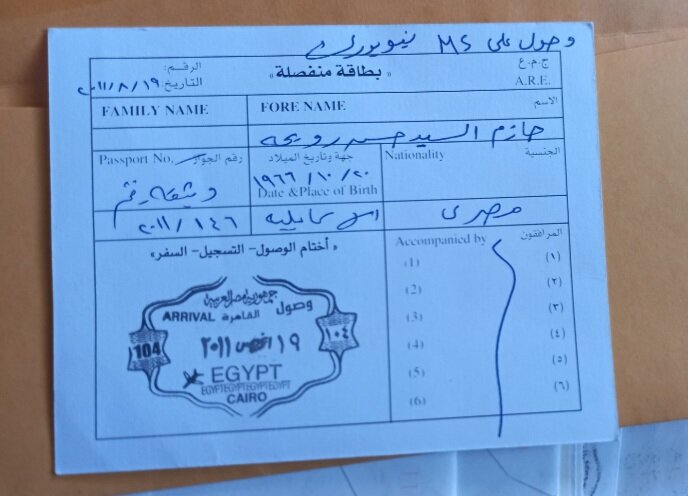 وصول على MS نيويورك
ج.م.ع
A.R.E.
« بطاقة منفصلة »
الرقم:
التاريخ ٢٠١١/٨/١٩
FAMILY NAME
FORE NAME
الاسم
حازم السيد حسن رويحه
Passport No.
رقم الجواز
جهة وتاريخ الميلاد
١٩٦٦/١٠/٢٠
Date &Place of Birth
Nationality
الجنسية
وثيقه رقم
٢٠١١/١٤٦
اسماعيلية
مصرى
« أختام الوصول- التسجيل- السفر»
Accompanied by
المرافقون
(1) (١)
(2) (٢)
(3) (٣)
(4) (٤)
(5) (٥)
(6) (٦)
جمهورية مصر العربية
ARRIVAL القاهرة وصول
104 ١٩ اغسطس ٢٠١١ ١٠٤
EGYPT
EGYPTEGYPTEGYPTEGYPT
CAIRO